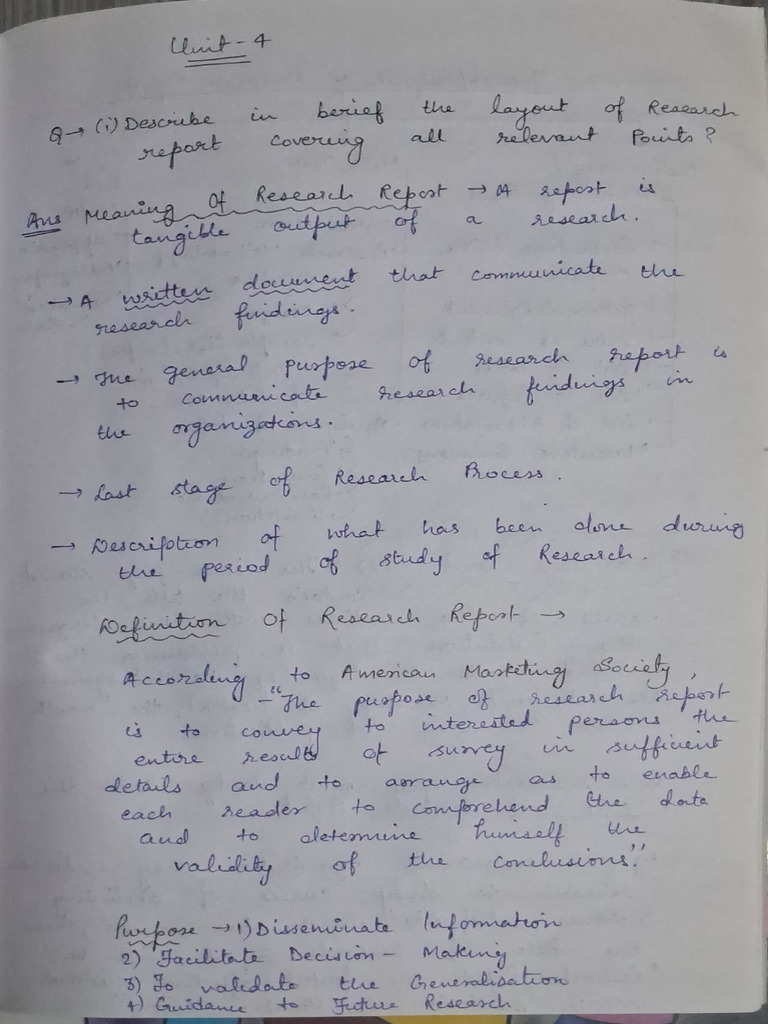 Unit - 4
Q → (i) Describe in berief the layout of Research
report covering all relevant Points?
Ans Meaning Of Research Report → A report is
tangible output of a research.
→ A written document that communicate the
research findings.
→ The general purpose of research report is
to communicate research findings in
the organizations.
→ Last stage of Research Process.
→ Description of what has been done during
the period of study of Research.
Definition Of Research Report →
According to American Marketing Society,
- "The purpose of research report
is to convey to interested persons the
entire results of survey in sufficient
details and to arrange as to enable
each reader to comprehend the data
and to determine himself the
validity of the conclusions."
Purpose → 1) Disseminate Information
2) Facilitate Decision - Making
3) To validate the Generalisation
4) Guidance to Future Research